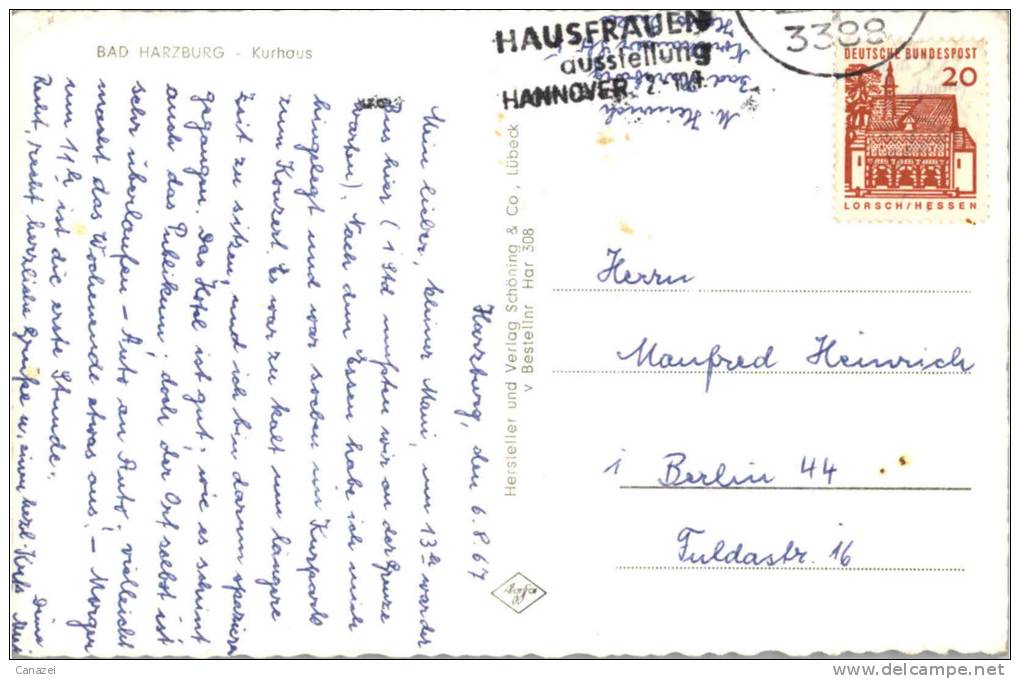 BAD HARZBURG - Kurhaus
HAUSFRAUEN
ausstellung
HANNOVER
3388
DEUTSCHE BUNDESPOST
20
LORSCH/HESSEN
M. Heinrich
Bad Harzburg
Harzburg, den 6.8.67
Mein lieber, kleiner Mani, um 13h war der
Bus hier (1 Std mußten wir an der Grenze
warten). Nach dem Essen habe ich mich
hingelegt und war soeben im Kurpark
zum Konzert. Es war zu kalt um längere
Zeit zu sitzen, und ich bin darum spazieren
gegangen. Das Hotel ist gut, wie es scheint
auch das Publikum; doch der Ort selbst ist
sehr überlaufen - Auto an Auto, vielleicht
macht das Wochenende etwas aus! - Morgen
um 11h ist die erste Stunde.
Recht, recht herzliche Grüße u. einen herzl. Kuß Deine
Hersteller und Verlag Schöning & Co., Lübeck
v Bestellnr Har 308
Agfa
Herrn
Manfred Heinrich
1 Berlin 44
Fuldastr. 16
Canazei
www.delcampe.net